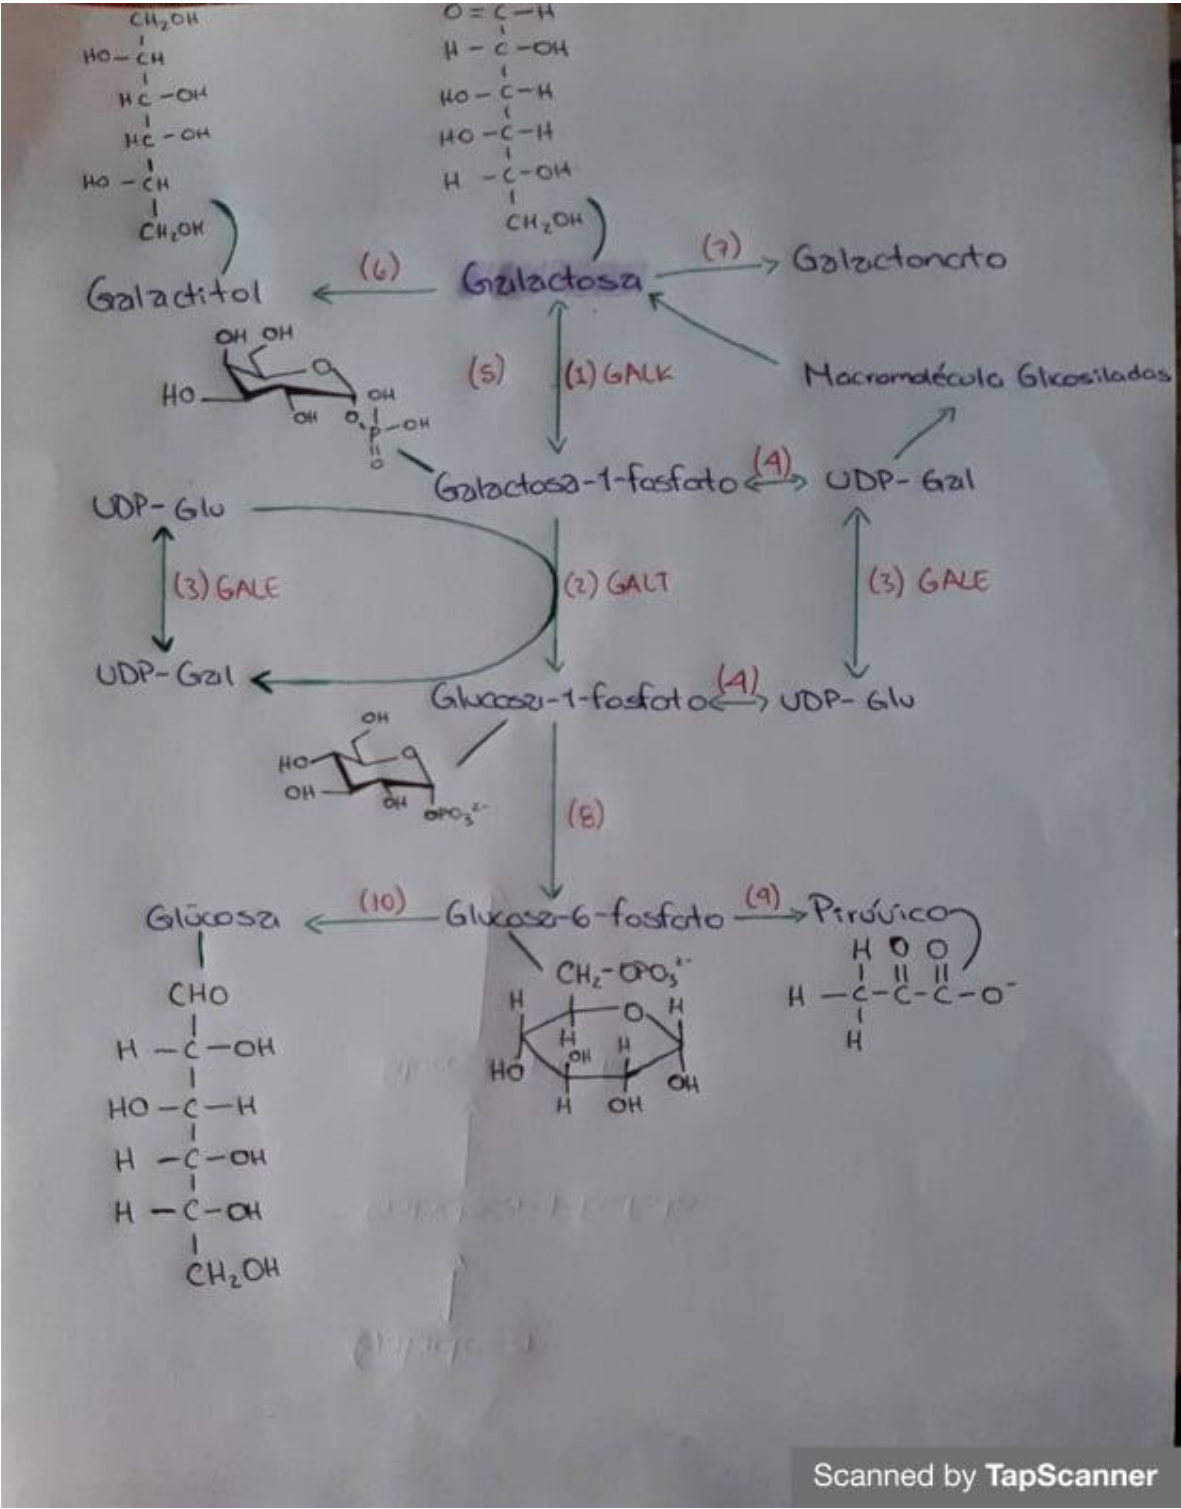 CH₂OH
HO-CH
HC-OH
HC-OH
HO-CH
CH₂OH
O=C-H
H-C-OH
HO-C-H
HO-C-H
H-C-OH
CH₂OH
Galactitol
(6)
Galactosa
(7)
Galactonato
OH OH
HO
O
OH
OH
O
P-OH
O
(5)
(1) GALK
Macromolécula Glicosiladas
Galactosa-1-fosfato
(4)
UDP-Gal
UDP-Glu
(3) GALE
(2) GALT
(3) GALE
UDP-Gal
Glucosa-1-fosfato
(4)
UDP-Glu
OH
HO
O
OH
OH
OPO₃²⁻
(8)
Glucosa
(10)
Glucosa-6-fosfato
(9)
Pirúvico
CHO
H-C-OH
HO-C-H
H-C-OH
H-C-OH
CH₂OH
CH₂-OPO₃²⁻
H
O
H
H
OH
H
HO
OH
H
OH
H O O
H-C-C-C-O⁻
H
Scanned by TapScanner